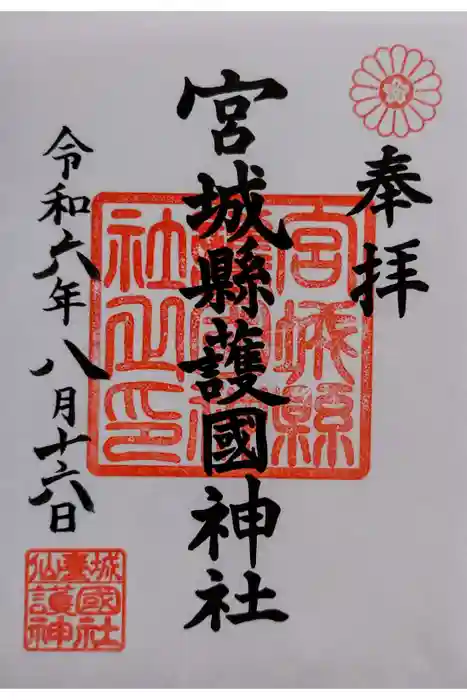 奉拝
宮城縣護國神社
令和六年八月十六日
宮城縣
社之印
仙臺城
護國
神社